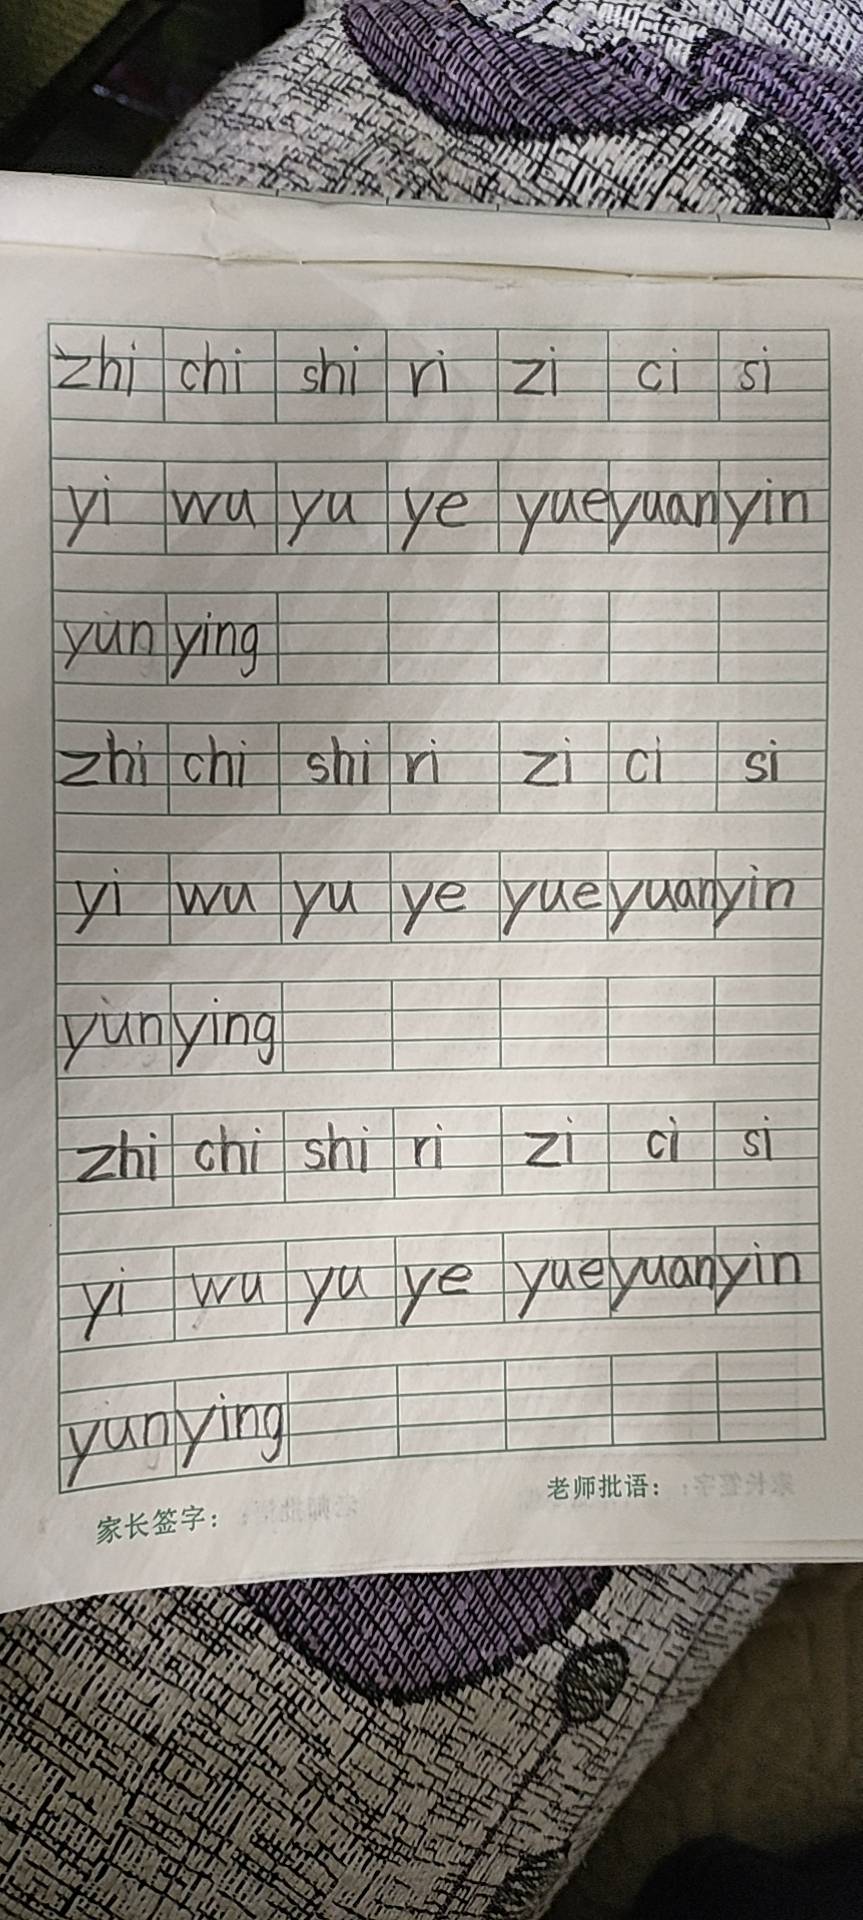 zhi chi shi ri zi ci si
yi wu yu ye yue yuan yin
yun ying
zhi chi shi ri zi ci si
yi wu yu ye yue yuan yin
yun ying
zhi chi shi ri zi ci si
yi wu yu ye yue yuan yin
yun ying
家长签字： 老师批语：